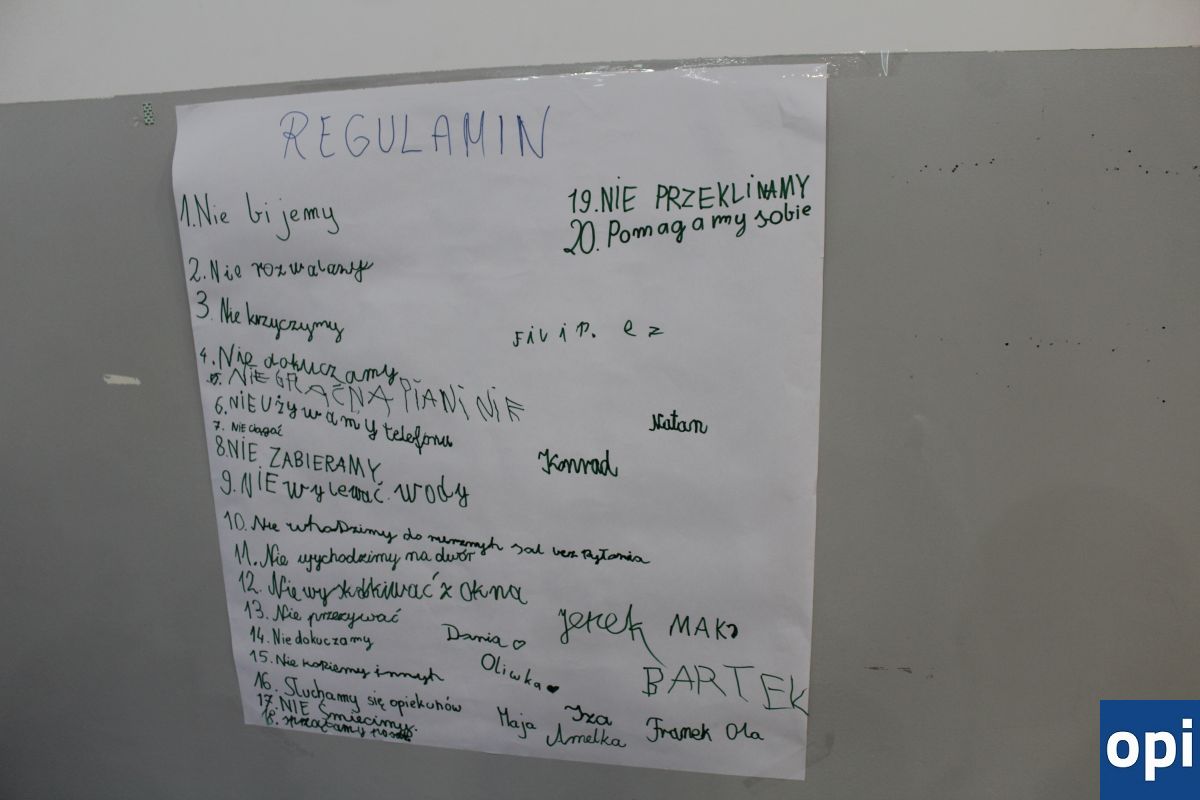 REGULAMIN
1. Nie bijemy
2. Nie rozwalamy
3. Nie krzyczymy
4. Nie dokuczamy
5. NIE GRAĆ NA PIANINIE
6. NIE Używamy telefonu
7. NIE ciągać
8. NIE ZABIERAMY
9. NIE wylewać wody
10. Nie whodzimy do sal bez pytania
11. Nie wychodzimy na dwór
12. Nie wyskakiwać z okna
13. Nie przezywać
14. Nie dokuczamy
15. Nie kopiemy innych
16. Słuchamy się opiekunów
17. NIE Śmiecimy.
18. sprzątamy
19. NIE PRZEKLINAMY
20. Pomagamy sobie
FiLiP. e z
Natan
Konrad
Jerek MAKS
Dania ♡
Oliwka ♥
BARTEK
Maja Iza Franek Ola
Amelka
opi